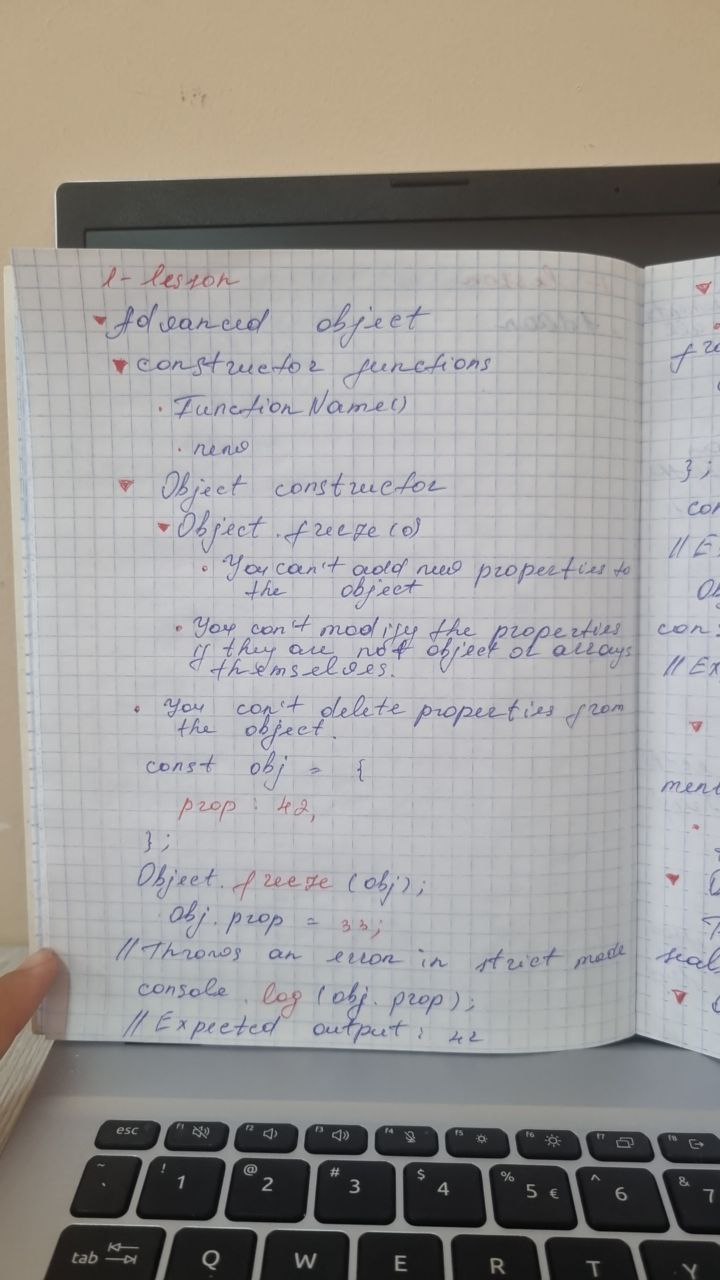 1-lesson
Advanced object
constructor functions
FunctionName()
new
Object constructor
Object.freeze()
You can't add new properties to
the object
You can't modify the properties
if they are not object or arrays
themselves.
You can't delete properties from
the object.
const obj = {
prop: 42,
};
Object.freeze(obj);
Obj.prop = 33;
//Throws an error in strict mode
console.log(obj.prop);
//Expected output: 42
};
con
//E
Ob
cons
//Ex
ment
scal
esc
F1
F2
F3
F4
F5
F6
F7
F8
~ `
! 1
@ 2
# 3
$ 4
% 5 €
^ 6
& 7
tab
Q
W
E
R
T
Y